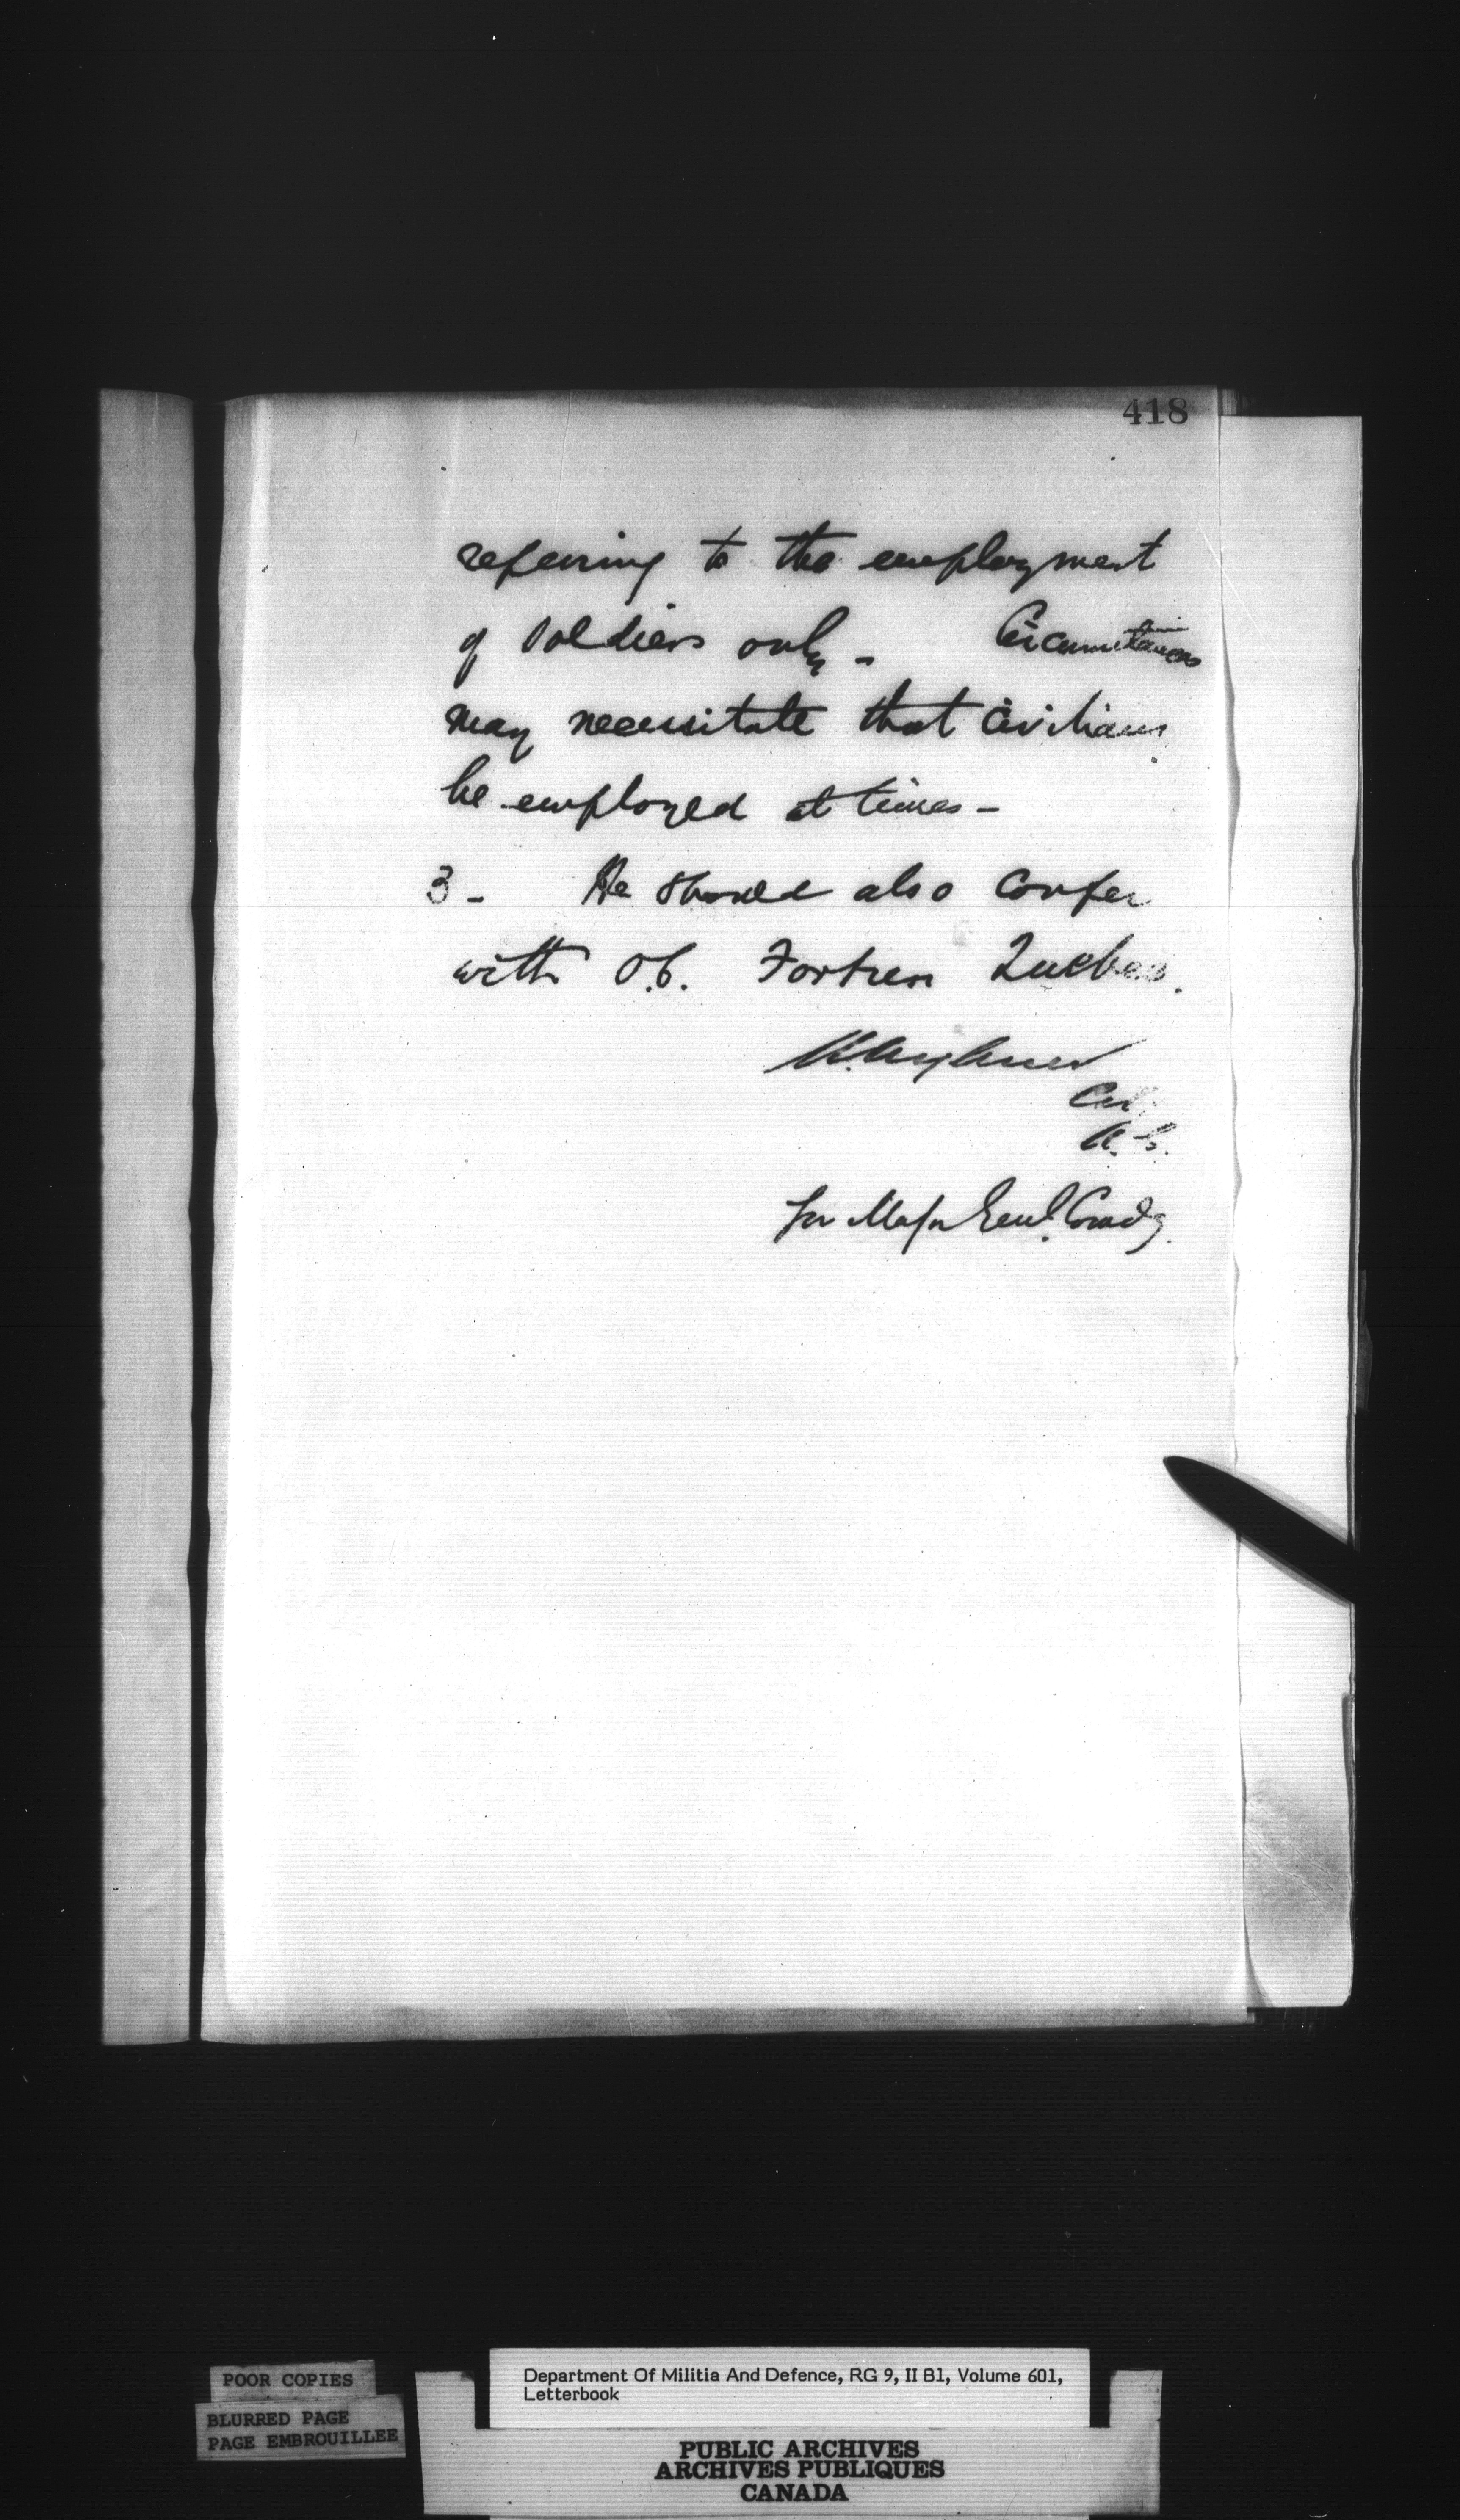 418
referring to the employment
of soldiers only - Circumstances
may necessitate that Civilians
be employed at times -
3 - He should also confer
with O.C. Fortress Quebec.
M. Aylmer
Col.
A.G.
for Major Genl. Comdg.
POOR COPIES
BLURRED PAGE
PAGE EMBROUILLEE
Department Of Militia And Defence, RG 9, II B1, Volume 601,
Letterbook
PUBLIC ARCHIVES
ARCHIVES PUBLIQUES
CANADA